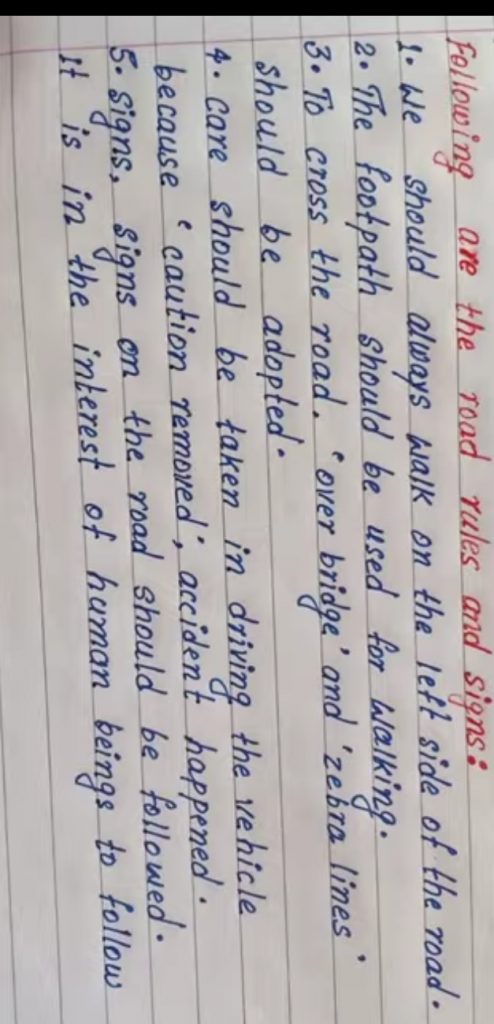 Following are the road rules and signs:
1. We should always walk on the left side of the road.
2. The footpath should be used for walking.
3. To cross the road, 'over bridge' and 'zebra lines'
should be adopted.
4. care should be taken in driving the vehicle
because 'caution removed', accident happened.
5. signs, signs on the road should be followed.
It is in the interest of human beings to follow